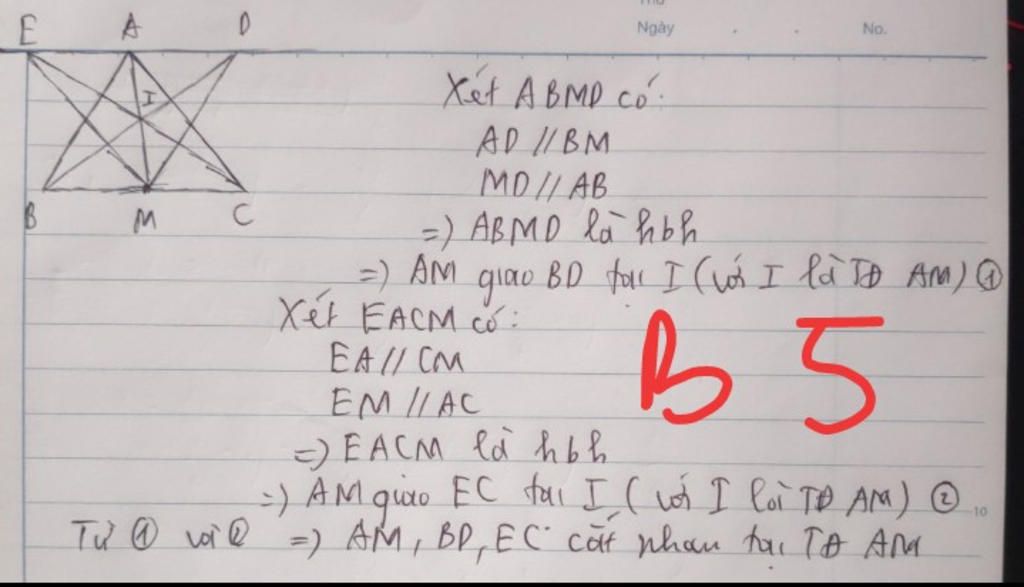 Thứ
Ngày . . No.
E A D
I
B M C
Xét ABMD có:
AD // BM
MD // AB
=) ABMD là hbh
=) AM giao BD tại I (với I là TĐ AM) ①
Xét EACM có:
EA // CM
EM // AC
=) EACM là hbh
=) AM giao EC tại I (với I là TĐ AM) ②
10
Từ ① và ② =) AM, BD, EC cắt nhau tại TĐ AM
B 5